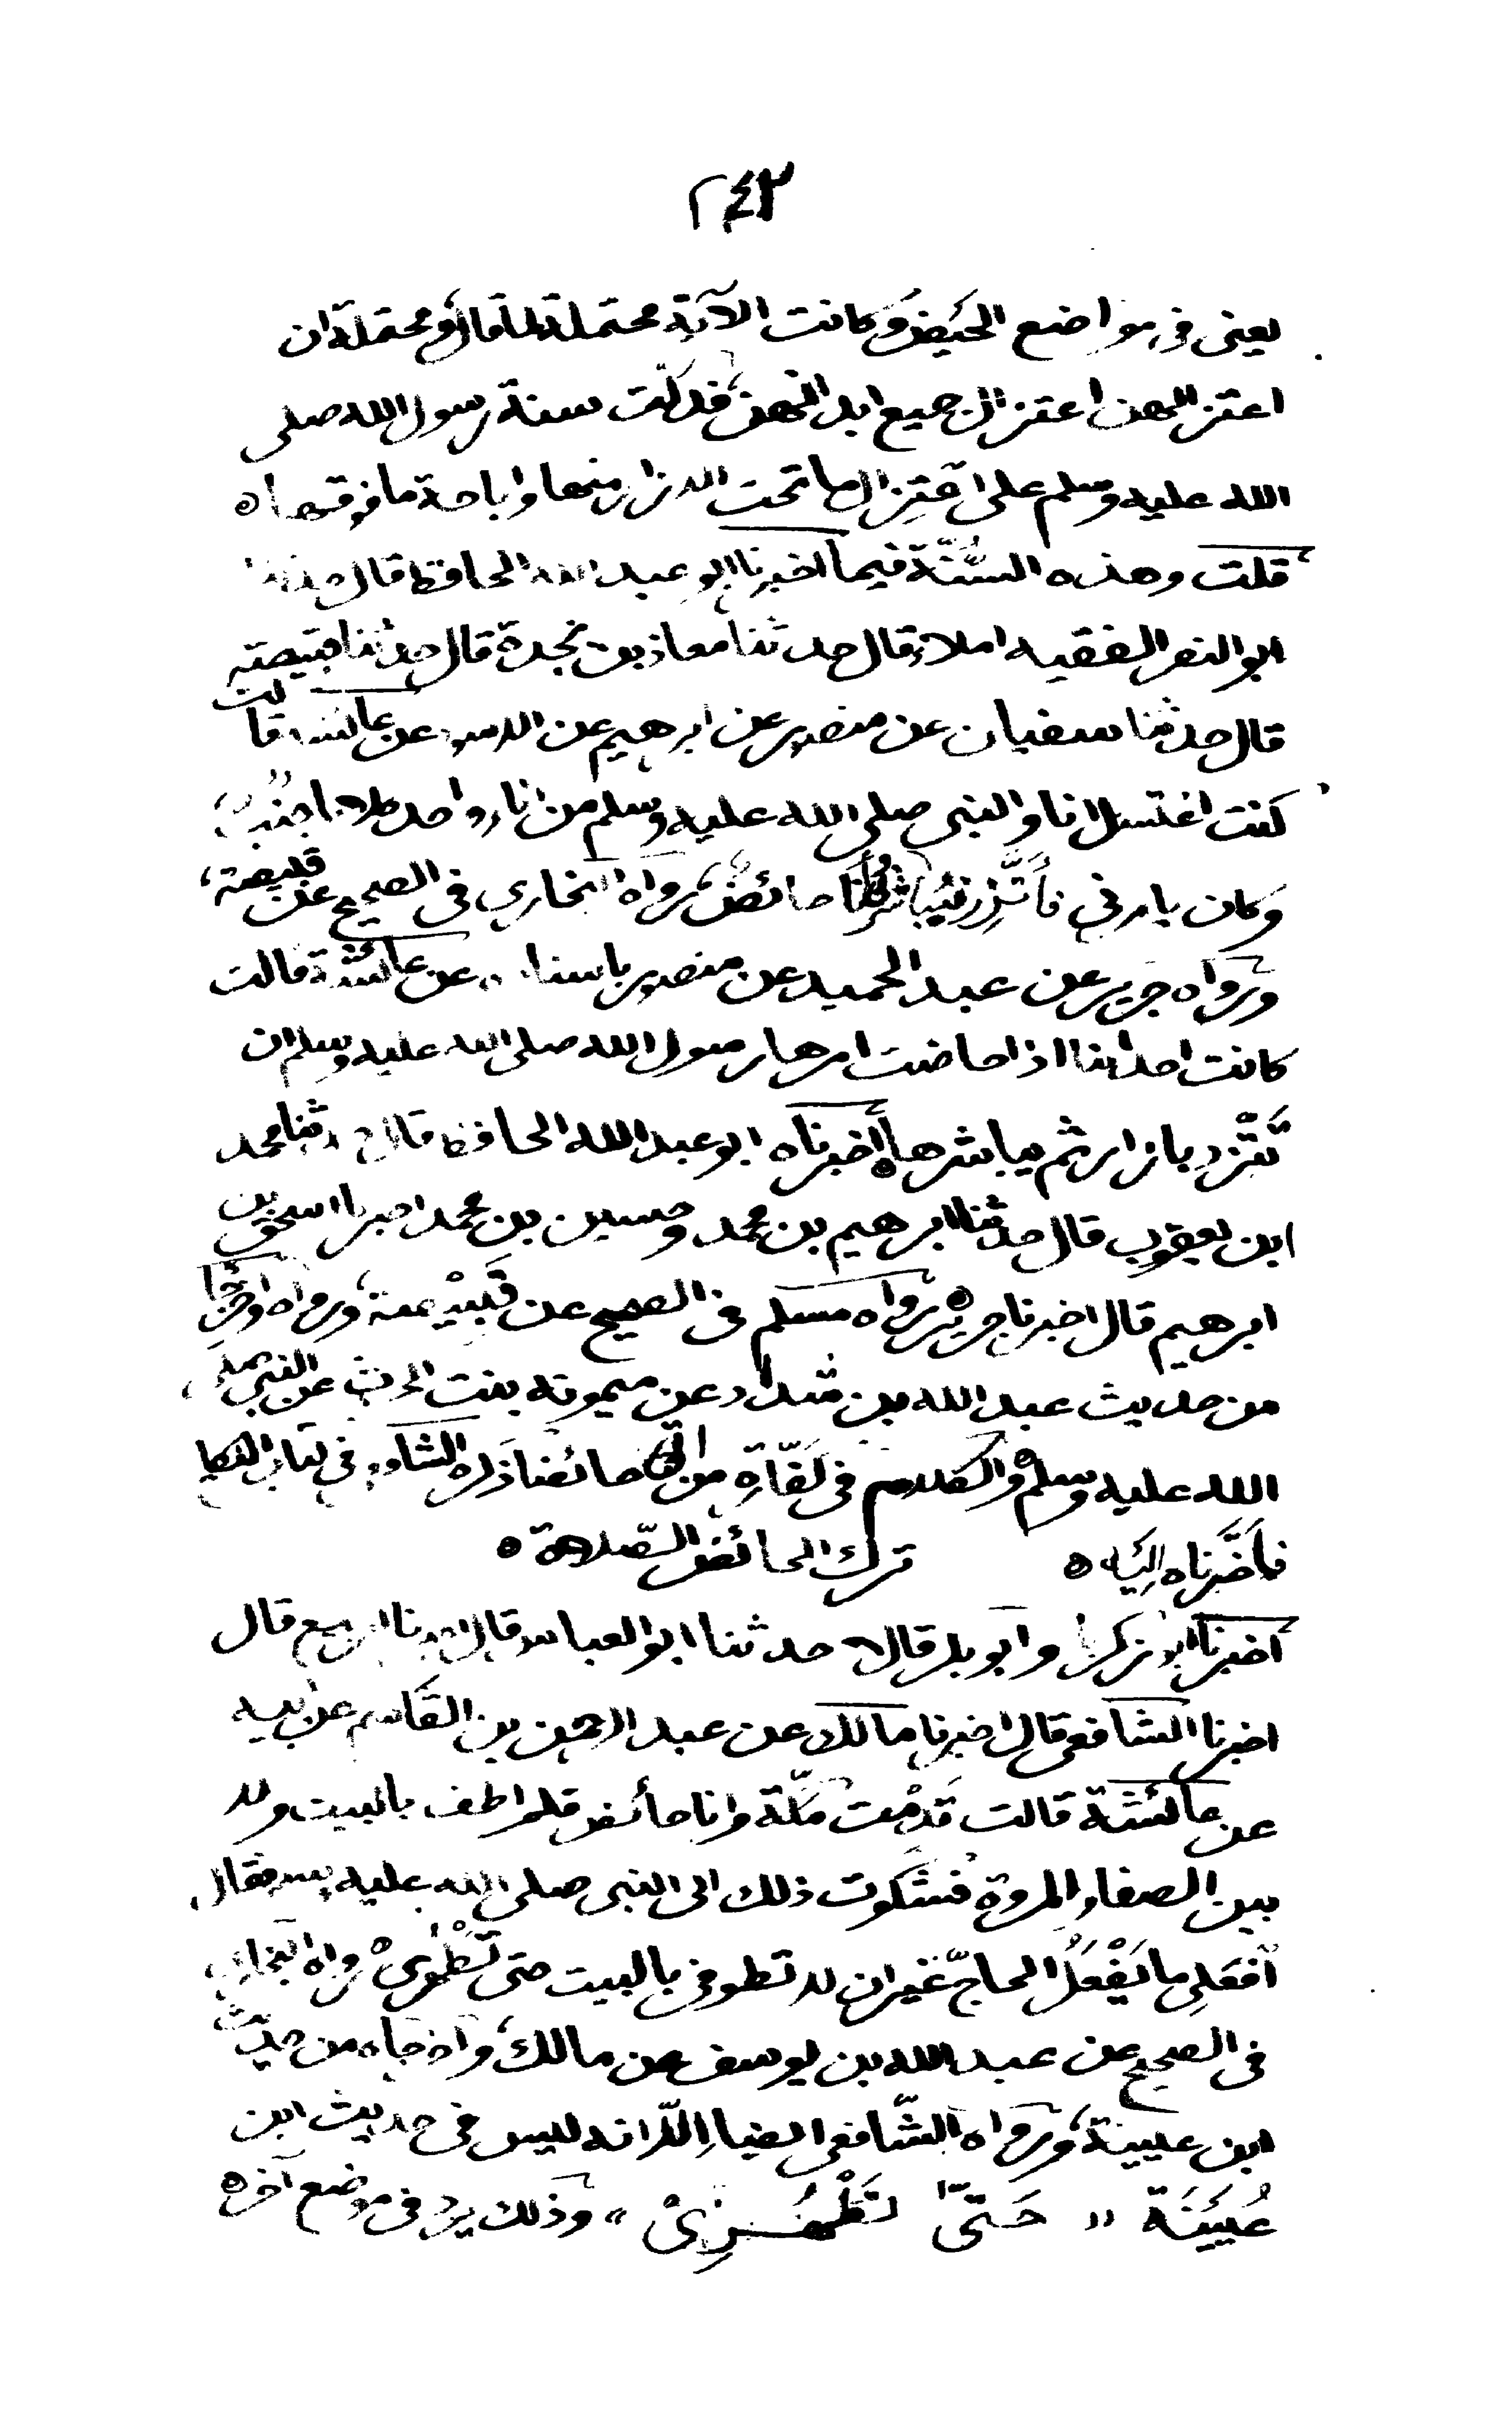 ٢٤٣
يعنى فى مواضع الحَيض وكانت الآية محتملة لما قال ومحتملة ان
اعتزالهن اعتزال جميع ابدانهن، فدلّت سنة رسول الله صلى
الله عليه وسلم على اعتزال ما تحت الازار منها واباحة ما فوقها ه
قلت وهذه السُّنّة فيما اخبرنا ابو عبد الله الحافظ قال حدثنا
ابو النضر الفقيه املاء قال حدثنا معاذ بن نجدة قال حدثنا قبيصة
قال حدثنا سفيان عن منصور عن ابرهيم عن الاسود عن عائشة قالت
كنت اغتسل انا والنبى صلى الله عليه وسلم من اناء واحد كلانا جنب،
وكان يامرنى فأتّزر فيباشرنى وانا حائض، رواه البخارى فى الصحيح عن قبيصة،
ورواه جرير عن عبد الحميد عن منصور باسناده عن عائشة قالت
كانت احدانا اذا حاضت امرها رسول الله صلى الله عليه وسلم ان
تَتّزر بازار ثم يباشرها ه أخبرناه ابو عبد الله الحافظ قال حدثنا محمد
ابن يعقوب قال حدثنا ابرهيم بن محمد وحسين بن محمد اخبرنا اسحق بن
ابرهيم قال اخبرنا جرير ه رواه مسلم فى الصحيح عن قبيصة، ورواه واخرجا
من حديث عبد الله بن شداد عن ميمونة بنت الحرث عن النبى صلى
الله عليه وسلم ه والكلام فى كفّارة من اتى حائضا ذكره الشافعى فى كتاب النكاح
فأخّرناه اليه ه ترك الحائض الصّلاة ه
أخبرنا ابو زكريا وابو بكر قالا حدثنا ابو العباس قال اخبرنا الربيع قال
اخبرنا الشافعى قال اخبرنا مالك عن عبد الرحمن بن القاسم عن ابيه
عن عائشة قالت قَدِمْت مكّة وانا حائض فلم اطف بالبيت ولا
بين الصفا والمروة فشكوت ذلك الى النبى صلى الله عليه وسلم فقال
افعَلِى ما يَفْعَلُ الحاجّ غير ان لا تطوفى بالبيت حتى تَطْهُرىْ رواه البخارى
فى الصحيح عن عبد الله بن يوسف عن مالك، واخرجاه من حديث
ابن عيينة، ورواه الشّافعى ايضا إلّا انه ليس فى حديث ابن
عُيَيْنَة " حَتىّ تَطْهُرِىْ " وذلك يرد فى موضع آخر ه